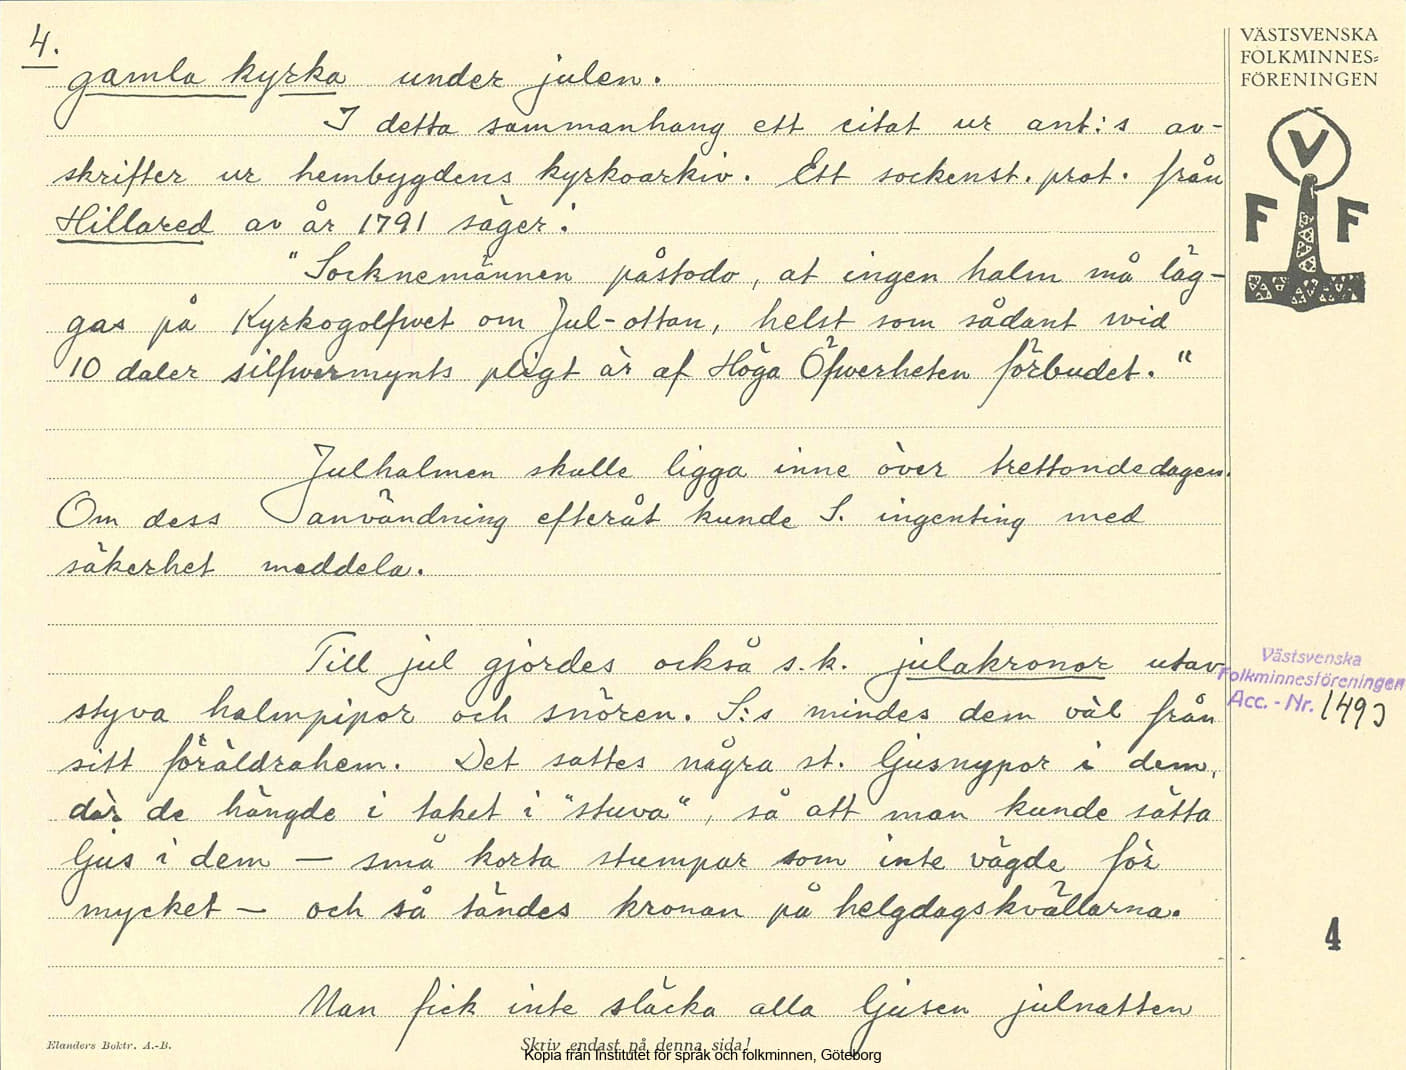 4.
gamla kyrka under julen.
I detta sammanhang ett citat ur ant:s av-
skrifter ur hembygdens kyrkoarkiv. Ett sockenst. prot. från
Hillared av år 1791 säger:
"Socknemännen påstodo, at ingen halm må läg-
gas på Kyrkogolfwet om Jul-ottan, helst som sådant wid
10 daler silfwermynts pligt är af Höga Öfwerheten förbudet."
Julhalmen skulle ligga inne över trettondedagen.
Om dess användning efteråt kunde S. ingenting med
säkerhet meddela.
Till jul gjordes också s.k. julakronor utav
styva halmpipor och snören. S:s mindes dem väl från
sitt föräldrahem. Det sattes några st. ljusnypor i dem,
där de hängde i taket i "stuva", så att man kunde sätta
ljus i dem — små korta stumpar som inte vägde för
mycket — och så tändes kronan på helgdagskvällarna.
Man fick inte släcka alla ljusen julnatten
Elanders Boktr. A.-B.
Skriv endast på denna sida!
Kopia från Institutet för språk och folkminnen, Göteborg
VÄSTSVENSKA
FOLKMINNES=
FÖRENINGEN
V
F F
Västsvenska
Folkminnesföreningen
Acc. - Nr. 1493
4